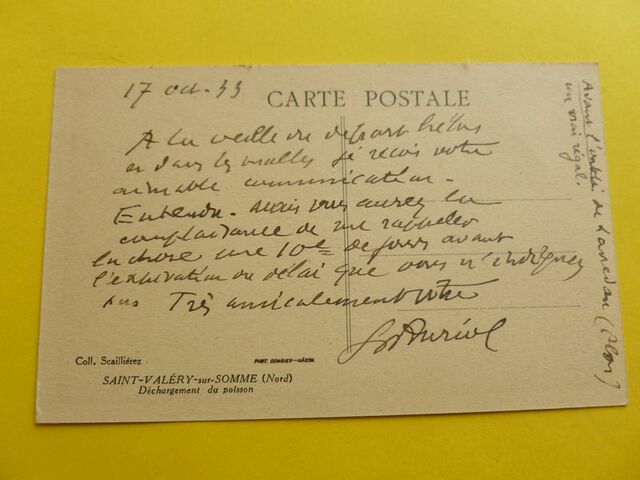 17 oct. 33
CARTE POSTALE
A la veille du départ hélas
et dans les malles je reçois votre
aimable communication.
Entendu. mais vous aurez la
complaisance de me rappeler
la chose une 10e de jours avant
l'expiration du délai que vous n'indiquez
pas Très amicalement votre
GAuriol
Avant l'oubli de
un vrai régal.
Coll. Scailliérez
PHOT. COMBIER-MACON
SAINT-VALÉRY-sur-SOMME (Nord)
Déchargement du poisson